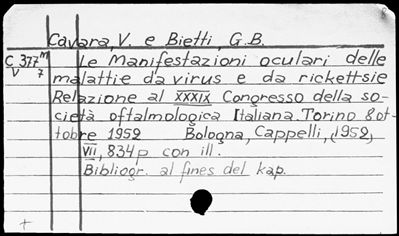 Cavara, V. e Bietti, G.B.
C 377m Le Manifestazioni oculari delle
V 7 malattie da virus e da rickettsie
Relazione al XXXIX Congresso della so-
cietà oftalmologica Italiana. Torino 8 ot-
tobre 1952 Bologna, Cappelli, (1952,
VII, 834p con ill.
Bibliogr. al fines del kap.
+